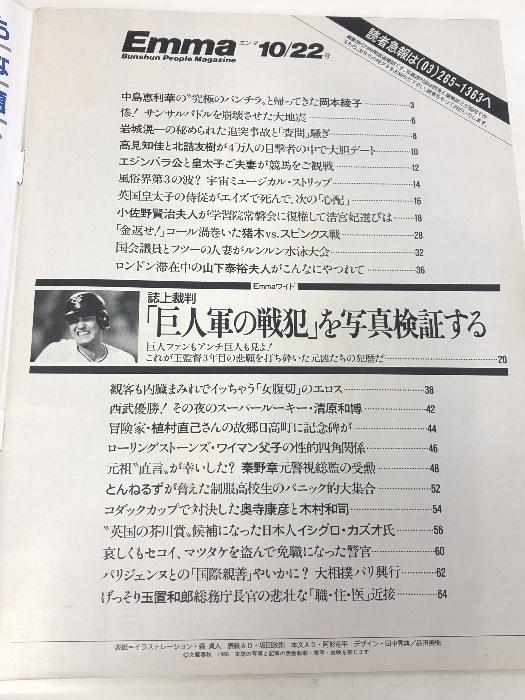 Emma エンマ 10/22号
Bunshun People Magazine
読者急報は(03)265-1363へ
中島恵利華の〝究極のパンチラ〟と帰ってきた岡本綾子 3
惨! サンサルバドルを崩壊させた大地震 6
岩城滉一の秘められた追突事故と「査問」騒ぎ 8
高見知佳と北詰友樹が4万人の目撃者の中で大胆デート 10
エジンバラ公と皇太子ご夫妻が競馬をご観戦 12
風俗界第3の波? 宇宙ミュージカル・ストリップ 14
英国皇太子の侍従がエイズで死んで、次の「心配」 16
小佐野賢治夫人が学習院常磐会に復権して浩宮妃選びは 18
「金返せ!」コール渦巻いた猪木vs.スピンクス戦 28
国会議員とフツーの人妻がルンルン水泳大会 32
ロンドン滞在中の山下泰裕夫人がこんなにやつれて 36
Emmaワイド
誌上裁判
「巨人軍の戦犯」を写真検証する
巨人ファンもアンチ巨人も見よ!
これが王監督3年目の悲願を打ち砕いた元凶たちの犯歴だ 20
観客も内臓まみれでイッちゃう「女腹切」のエロス 38
西武優勝! その夜のスーパールーキー・清原和博 42
冒険家・植村直己さんの故郷日高町に記念碑が 44
ローリングストーンズ・ワイマン父子の性的四角関係 46
元祖〝直言〟が幸いした? 秦野章元警視総監の受勲 48
とんねるずが脅えた制服高校生のパニック的大集合 52
コダックカップで対決した奥寺康彦と木村和司 54
〝英国の芥川賞〟候補になった日本人イシグロ・カズオ氏 56
哀しくもセコイ、マツタケを盗んで免職になった警官 60
パリジェンヌとの「国際親善」やいかに? 大相撲パリ興行 62
げっそり玉置和郎総務庁長官の悲壮な「職・住・医」近接 64
表紙=イラストレーション・森 貞人 表紙AD・坂田政則 本文AD・阿形竜平 デザイン・田中秀典/品田美樹
©文藝春秋 1986 本誌の写真と記事の無断転載・複写・放映を禁じます